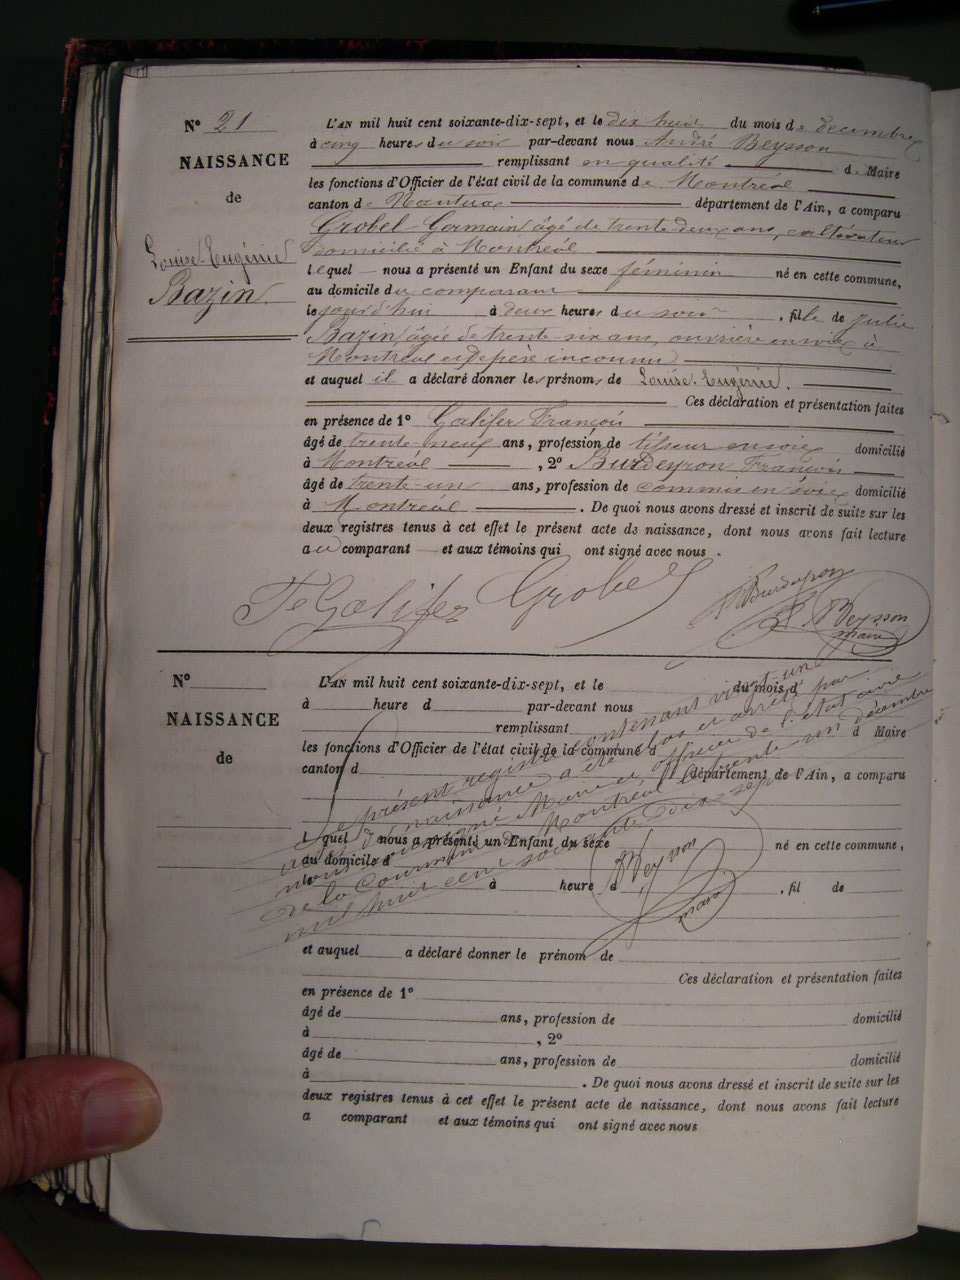 N° 21
NAISSANCE
de
Louise Eugénie
Bazin.
L'AN mil huit cent soixante-dix-sept, et le dix huit du mois de décembre
à cinq heures du soir par-devant nous André Beysson
remplissant en qualité de Maire
les fonctions d'Officier de l'état civil de la commune de Montréal
canton de Nantua département de l'Ain, a comparu
Grobel Germain, âgé de trente deux ans, cultivateur
domicilié à Montréal
lequel nous a présenté un Enfant du sexe féminin né en cette commune,
au domicile du comparant
le jourd'hui à deux heures du soir , fille de Julie
Bazin, âgée de trente-six ans, ouvrière en soie à
Montréal et de père inconnu
et auquel il a déclaré donner les prénoms de Louise Eugénie.
Ces déclaration et présentation faites
en présence de 1° Galifer François
âgé de trente neuf ans, profession de tisseur en soie domicilié
à Montréal , 2° Burdeyron François
âgé de trente-un ans, profession de commis en soie domicilié
à Montréal . De quoi nous avons dressé et inscrit de suite sur les
deux registres tenus à cet effet le présent acte de naissance, dont nous avons fait lecture
au comparant et aux témoins qui ont signé avec nous .
Fs Galifer Grobel Burdeyron
A. Beysson
maire
N°
NAISSANCE
de
L'AN mil huit cent soixante-dix-sept, et le du mois d
à heure d par-devant nous
remplissant d Maire
les fonctions d'Officier de l'état civil de la commune d
canton d département de l'Ain, a comparu
l quel nous a présenté un Enfant du sexe né en cette commune,
au domicile d
le à heure d , fil de
et auquel a déclaré donner le prénom de
Ces déclaration et présentation faites
en présence de 1°
âgé de ans, profession de domicilié
à , 2°
âgé de ans, profession de domicilié
à . De quoi nous avons dressé et inscrit de suite sur les
deux registres tenus à cet effet le présent acte de naissance, dont nous avons fait lecture
a comparant et aux témoins qui ont signé avec nous
Le présent registre contenant vingt un
actes de naissance a été clos et arrêté par
nous soussigné Maire et officier de l'état civil
de la Commune de Montréal le trente un décembre
mil huit cent soixante dix sept
A. Beysson
maire